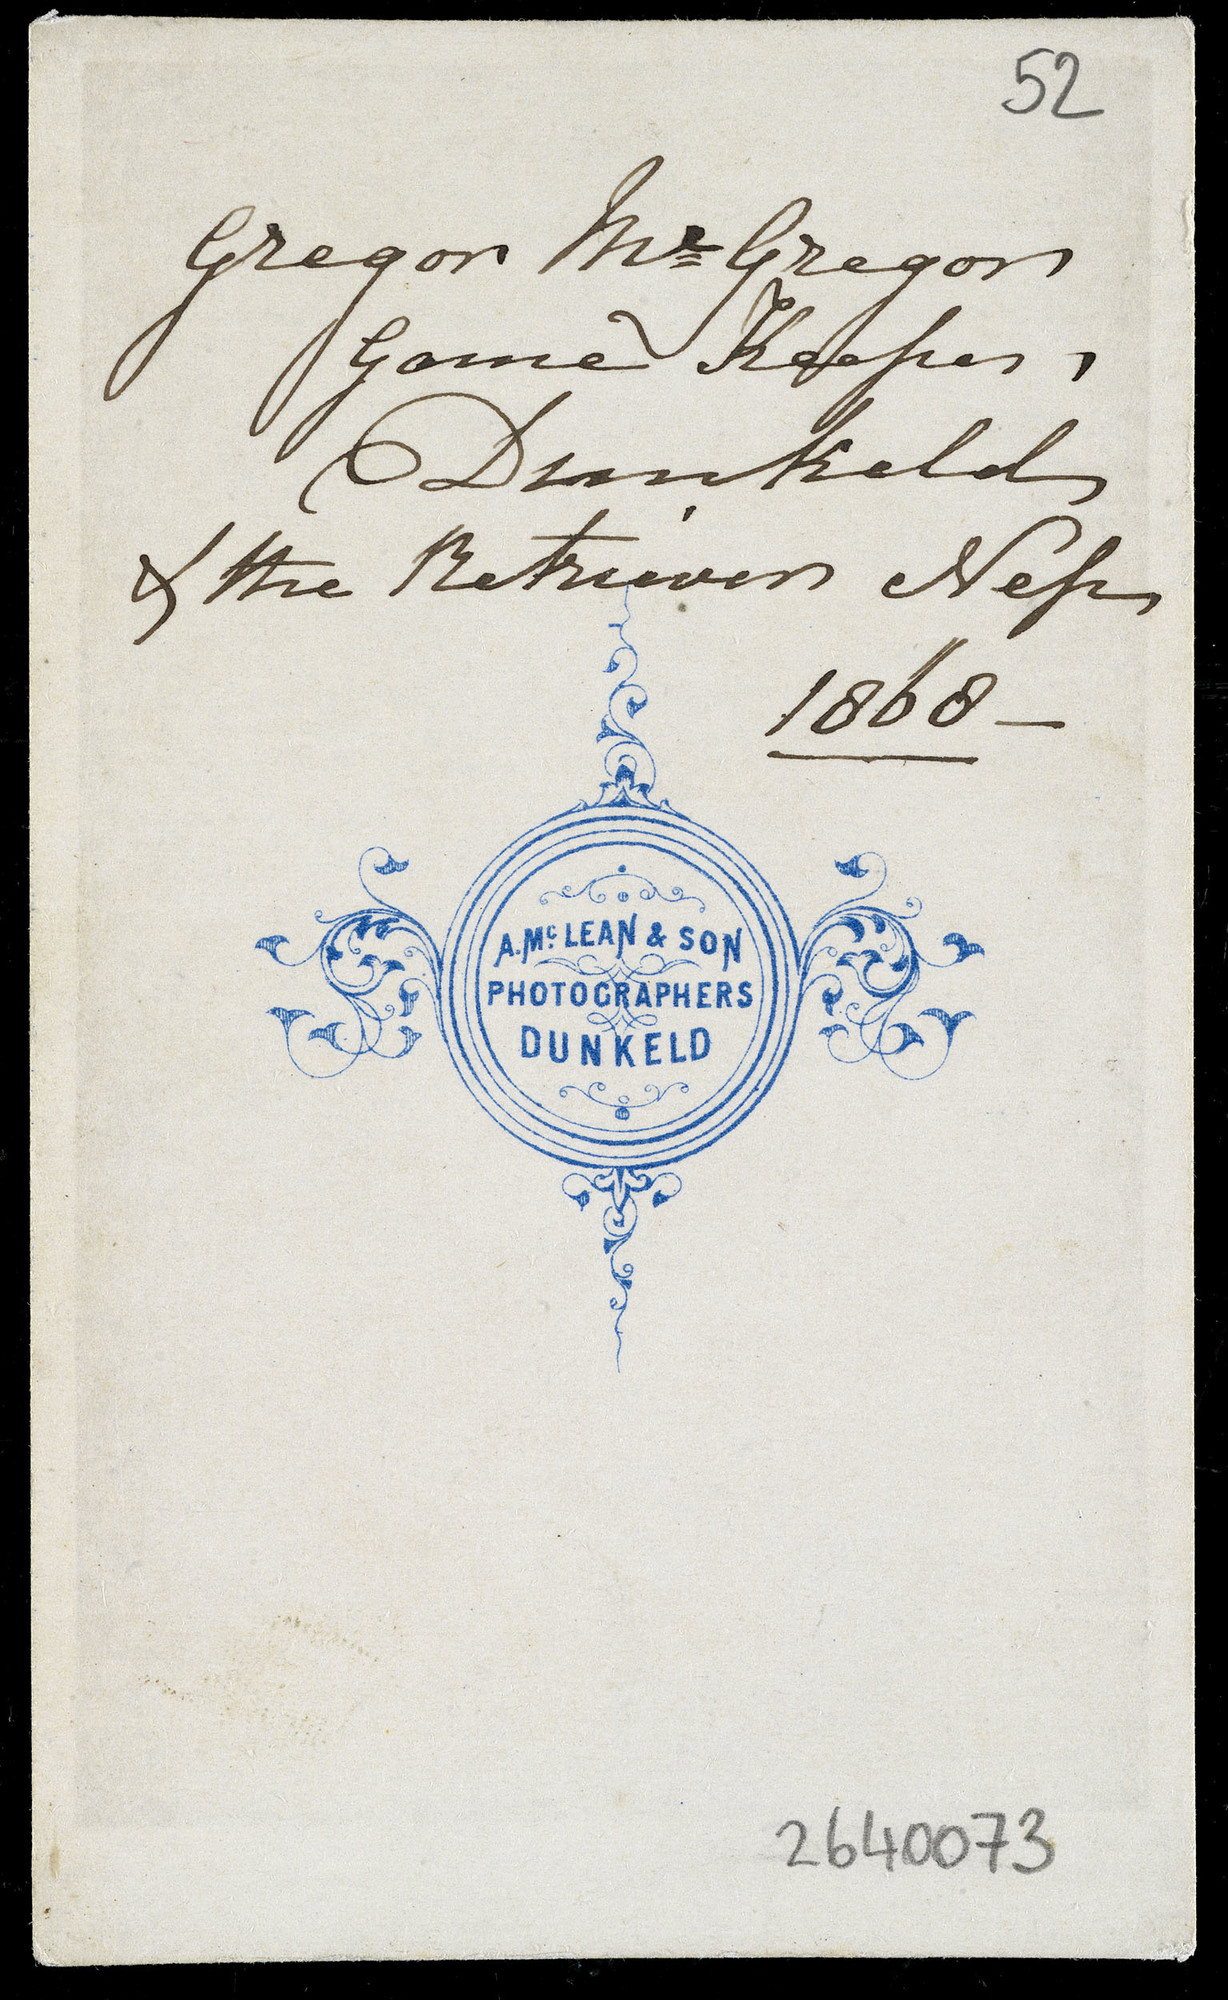 52
Gregor McGregor
Game Keeper,
Dunkeld
& the Retriever Nep
1868 –
A. Mc LEAN & SON
PHOTOGRAPHERS
DUNKELD
2640073